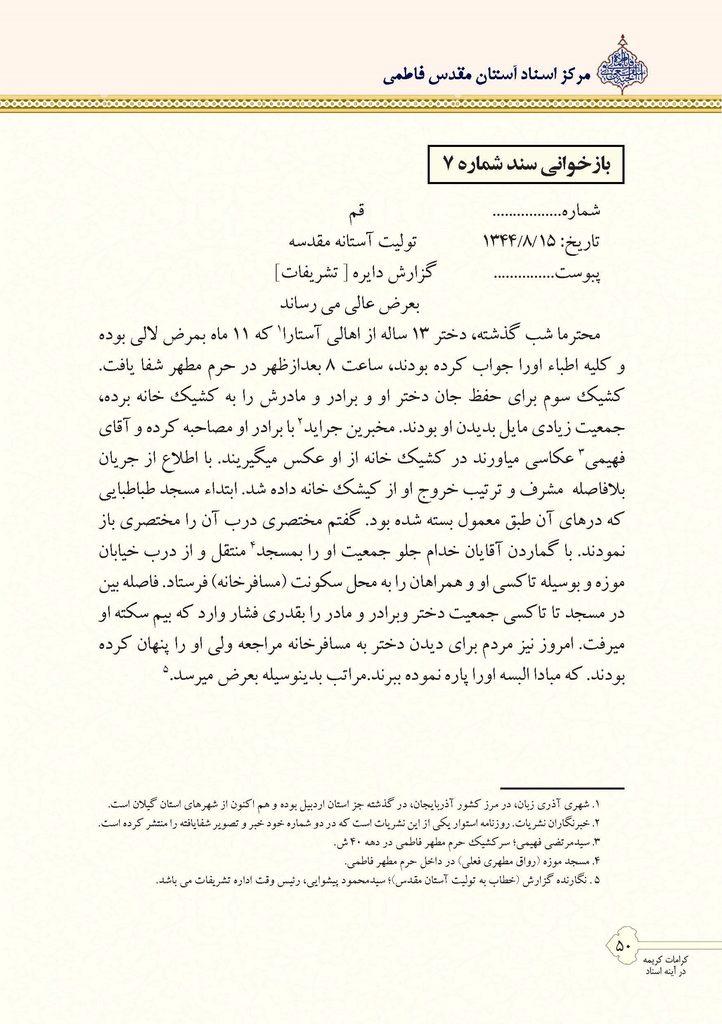 مرکز اسناد آستان مقدس فاطمی
بازخوانی سند شماره ۷
شماره................. قم
تاریخ: ۱۳۴۴/۸/۱۵ تولیت آستانه مقدسه
پیوست............... گزارش دایره [ تشریفات]
بعرض عالی می رساند
محترما شب گذشته، دختر ۱۳ ساله از اهالی آستارا۱ که ۱۱ ماه بمرض لالی بوده
و کلیه اطباء اورا جواب کرده بودند، ساعت ۸ بعدازظهر در حرم مطهر شفا یافت.
کشیک سوم برای حفظ جان دختر او و برادر و مادرش را به کشیک خانه برده،
جمعیت زیادی مایل بدیدن او بودند. مخبرین جراید۲ با برادر او مصاحبه کرده و آقای
فهیمی۳ عکاسی میاورند در کشیک خانه از او عکس میگیرند. با اطلاع از جریان
بلافاصله مشرف و ترتیب خروج او از کیشک خانه داده شد. ابتداء مسجد طباطبایی
که درهای آن طبق معمول بسته شده بود. گفتم مختصری درب آن را مختصری باز
نمودند. با گماردن آقایان خدام جلو جمعیت او را بمسجد۴ منتقل و از درب خیابان
موزه و بوسیله تاکسی او و همراهان را به محل سکونت (مسافرخانه) فرستاد. فاصله بین
در مسجد تا تاکسی جمعیت دختر وبرادر و مادر را بقدری فشار وارد که بیم سکته او
میرفت. امروز نیز مردم برای دیدن دختر به مسافرخانه مراجعه ولی او را پنهان کرده
بودند. که مبادا البسه اورا پاره نموده ببرند.مراتب بدینوسیله بعرض میرسد.۵
۱. شهری آذری زبان، در مرز کشور آذربایجان، در گذشته جز استان اردبیل بوده و هم اکنون از شهرهای استان گیلان است.
۲. خبرنگاران نشریات. روزنامه استوار یکی از این نشریات است که در دو شماره خود خبر و تصویر شفایافته را منتشر کرده است.
۳. سیدمرتضی فهیمی؛ سرکشیک حرم مطهر فاطمی در دهه ۴۰ ش.
۴. مسجد موزه (رواق مطهری فعلی) در داخل حرم مطهر فاطمی.
۵ . نگارنده گزارش (خطاب به تولیت آستان مقدس)؛ سیدمحمود پیشوایی، رئیس وقت اداره تشریفات می باشد.
۵۰
کرامات کریمه
در آینه اسناد